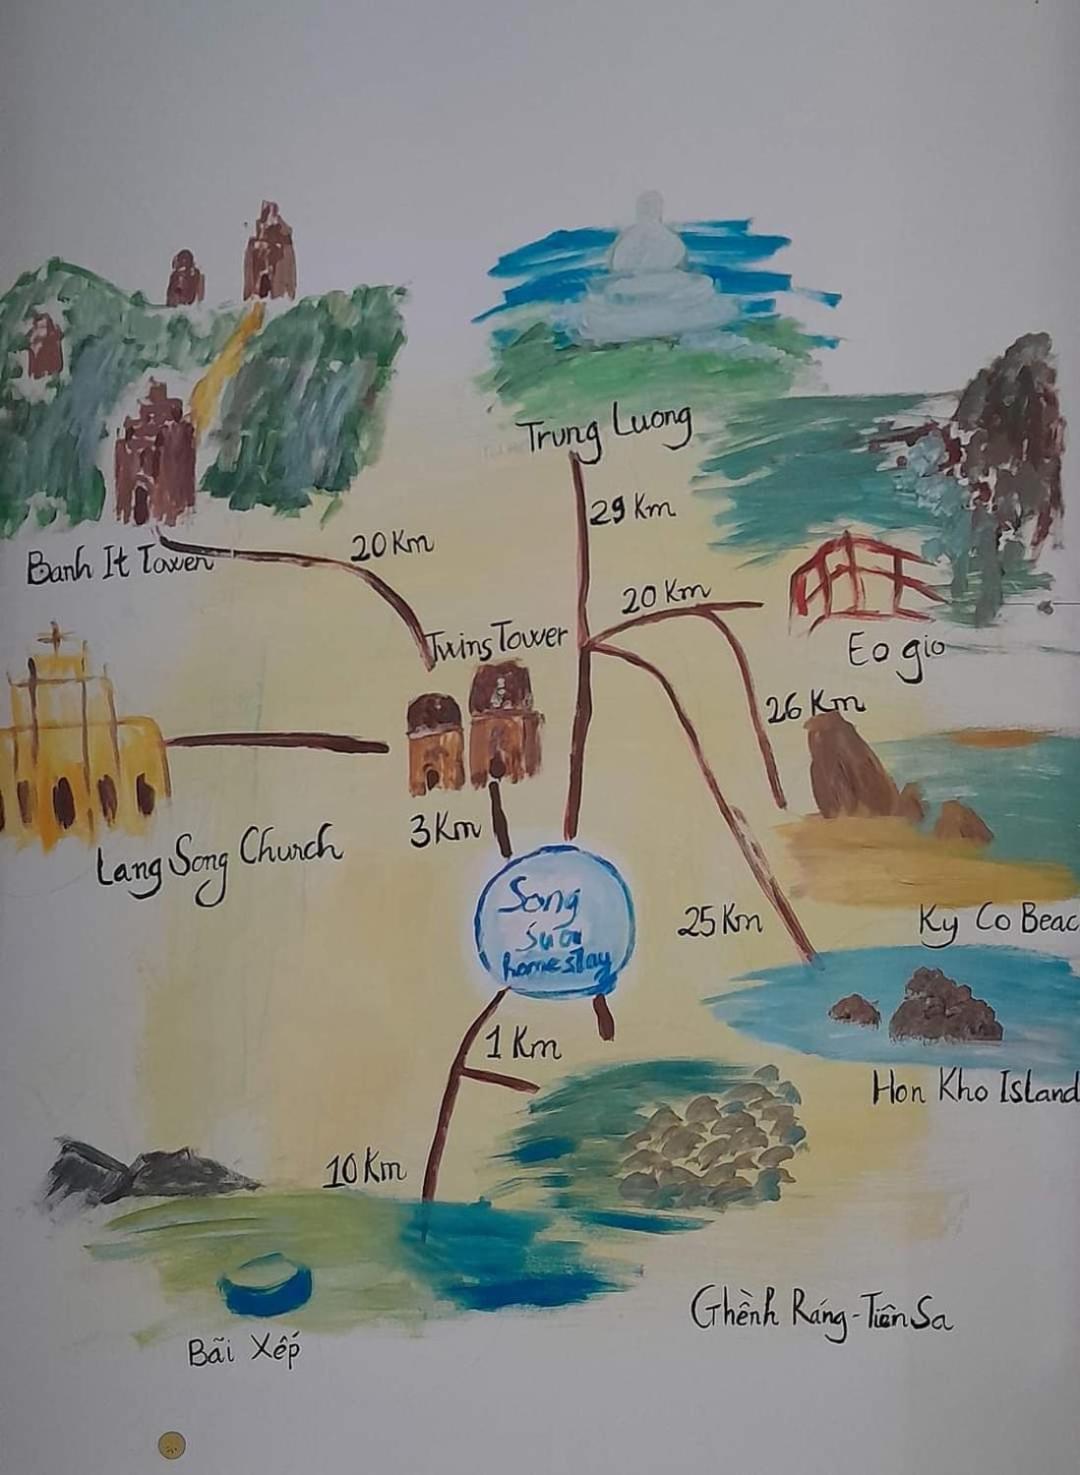 Trung Luong
29 Km
20 Km
Banh It Tower
20 Km
Twins Tower
Eo gio
26 Km
3 Km
Lang Song Church
Song
Suoi
homestay
25 Km
Ky Co Beac
1 Km
Hon Kho Island
10 Km
Ghềnh Ráng - Tiên Sa
Bãi Xếp